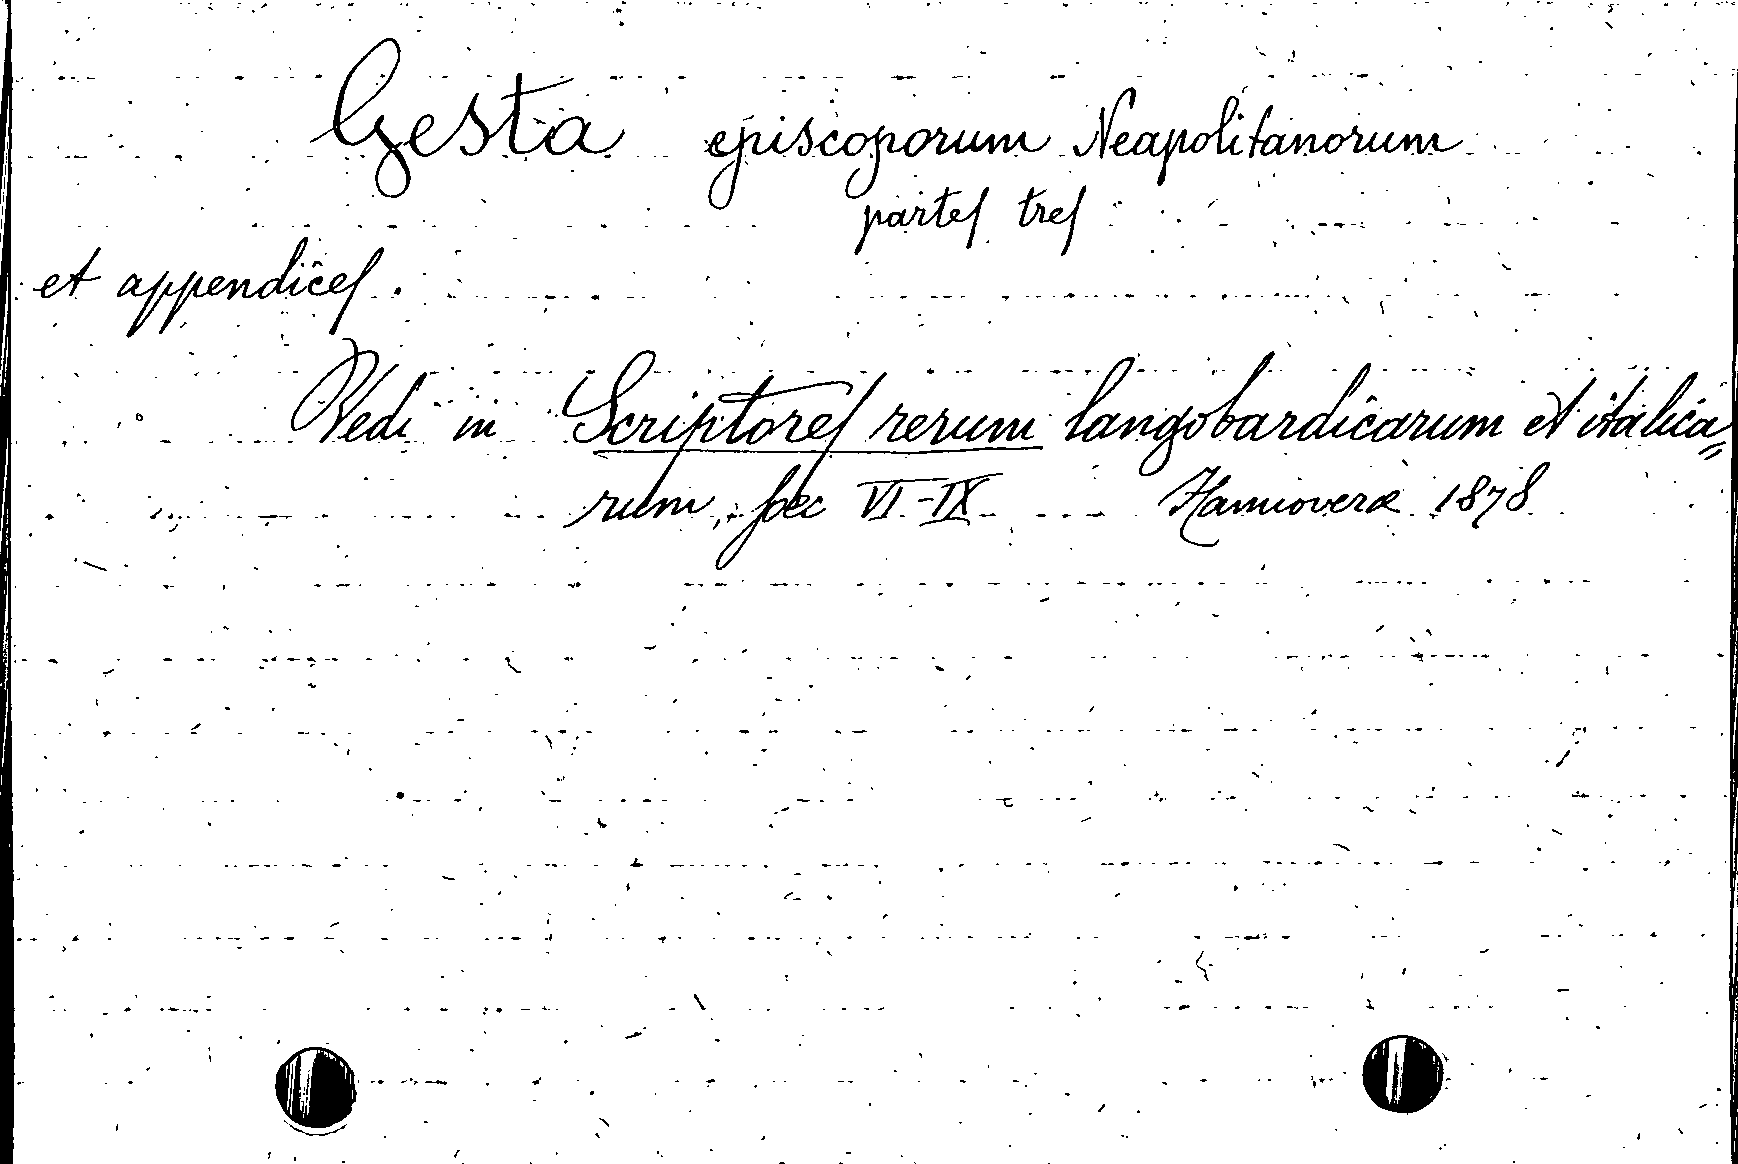 Gesta episcoporum Neapolitanorum
partes tres
et appendices.
Vedi in Scriptores rerum langobardicarum et italica=
rum, sec VI-IX Hannoverae 1878